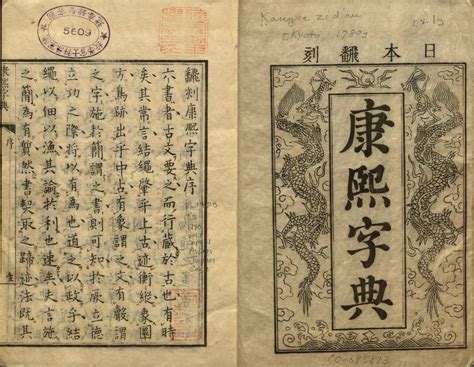 日本飜刻
康熙字典
飜刻康熙字典序
六書者古文要之而行藏於古也有時
矣其常言結繩肇乎上古迹衡縱象圜
方鳥跡出乎中古有像謂之文有謂
之字施於簡謂之書則可知於厥立德
立功之際將以有為也道之以政乎結
繩以佃以漁其諭於利也速矣史言施
之簡為有然書契取之蹄迹法既其
序
5609